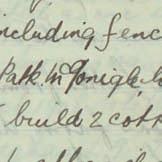 including fenc
Park. McGonigle, b
build 2 cott